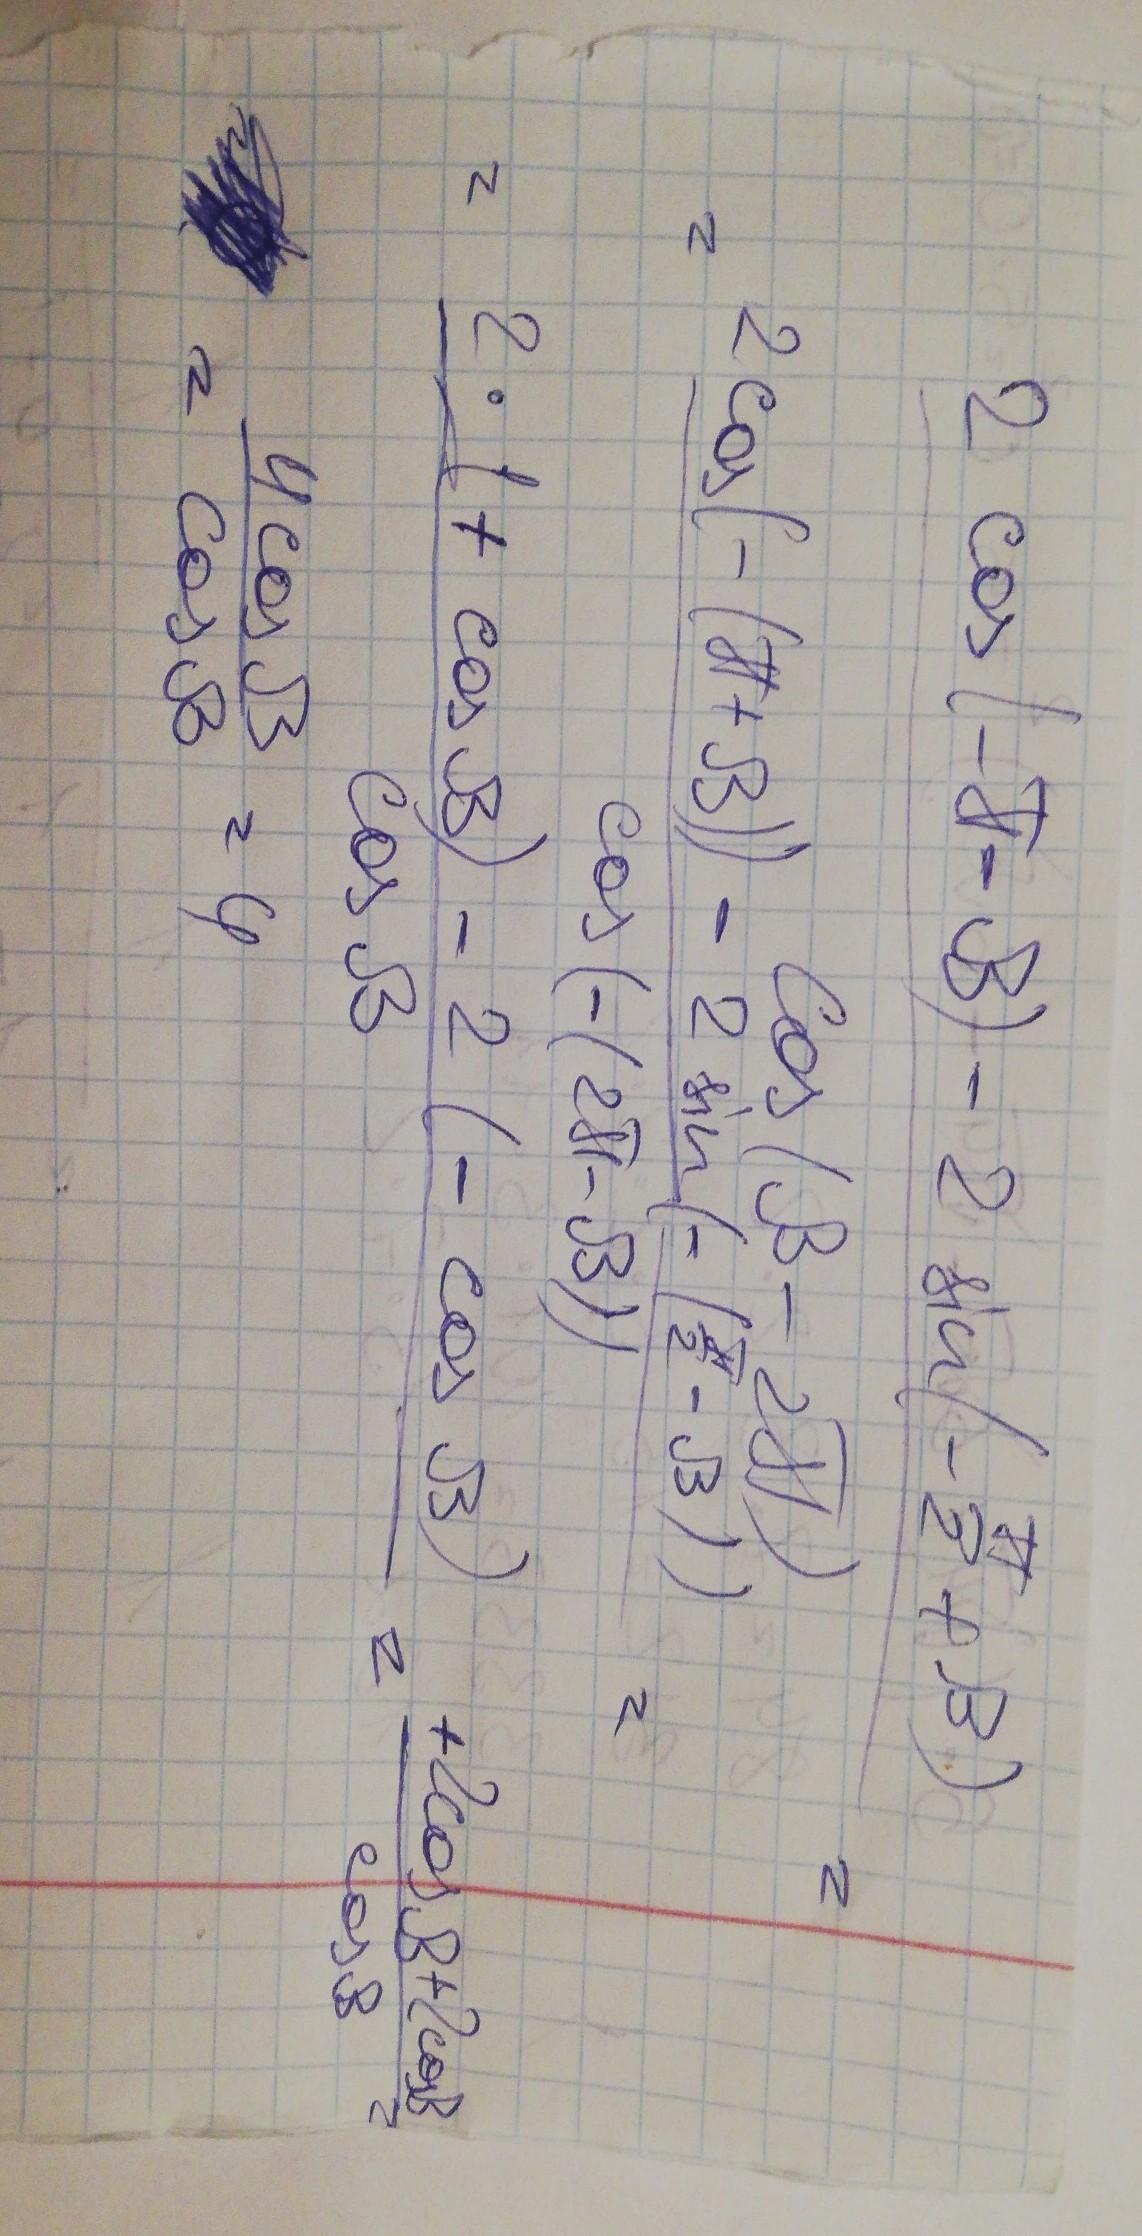 2 cos(-π-β) - 2 sin(-π/2 + β)
cos(β - 2π)
=
= 2cos(-(π+β)) - 2 sin(-(π/2 - β))
cos(-(2π-β))
=
= 2·(+ cos β) - 2(-cos β)
cos β
= +2cosβ+2cosβ
cosβ
=
= 4cosβ
cosβ
= 4